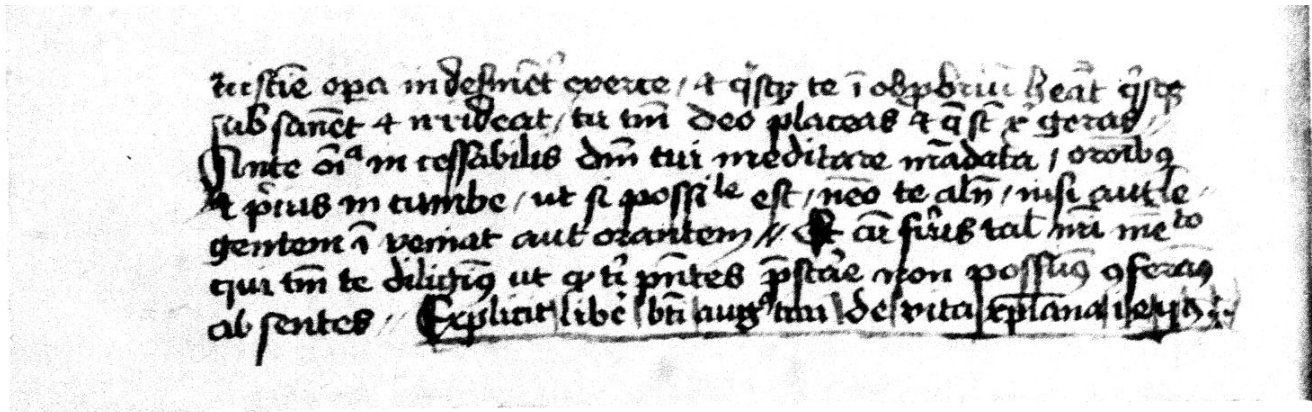 iusticie opa indesinet exerce / ⁊ qisqȝ te i obprobriu heat qisqȝ
subsanet ⁊ irrideat / tu tm deo placeas ⁊ q st xi geras //
Ante oia incessabilis dni tui meditare madata / oroibꝰ
⁊ pius incumbe / ut si possile est / neo te aln / nisi aut le
gentem iveniat aut orantem // Et cu fuis tal nri meto
qui tm te diligimꝰ ut qd ti pntes pstare non possumꝰ ꝯferamꝰ
absentes // Explicit libe bti augꝰtini de vita xpiana